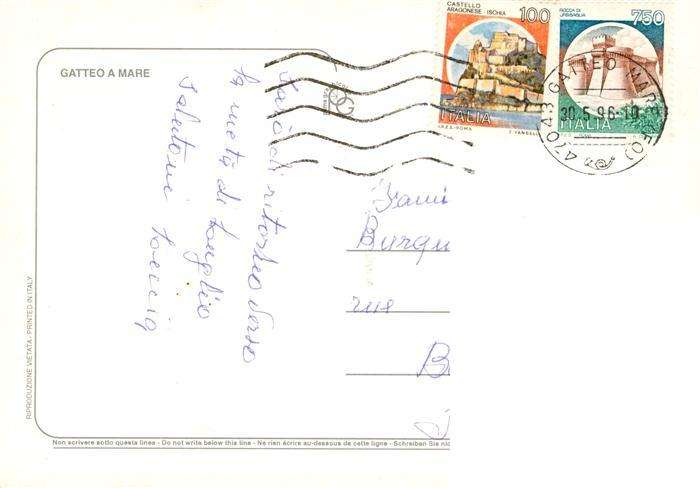 GATTEO A MARE
Sarò di ritorno verso
la metà di Luglio
Saluti
CASTELLO
ARAGONESE - ISCHIA
100
ITALIA
I.P.Z.S. - ROMA
ROCCA DI
URBISAGLIA
750
ITALIA
47043 GATTEO MARE (FO)
30.5.96-10
Fami
Burgu
rue
B
RIPRODUZIONE VIETATA - PRINTED IN ITALY
Non scrivere sotto questa linea - Do not write below this line - Ne rien écrire au-dessous de cette ligne - Schreiben Sie nic